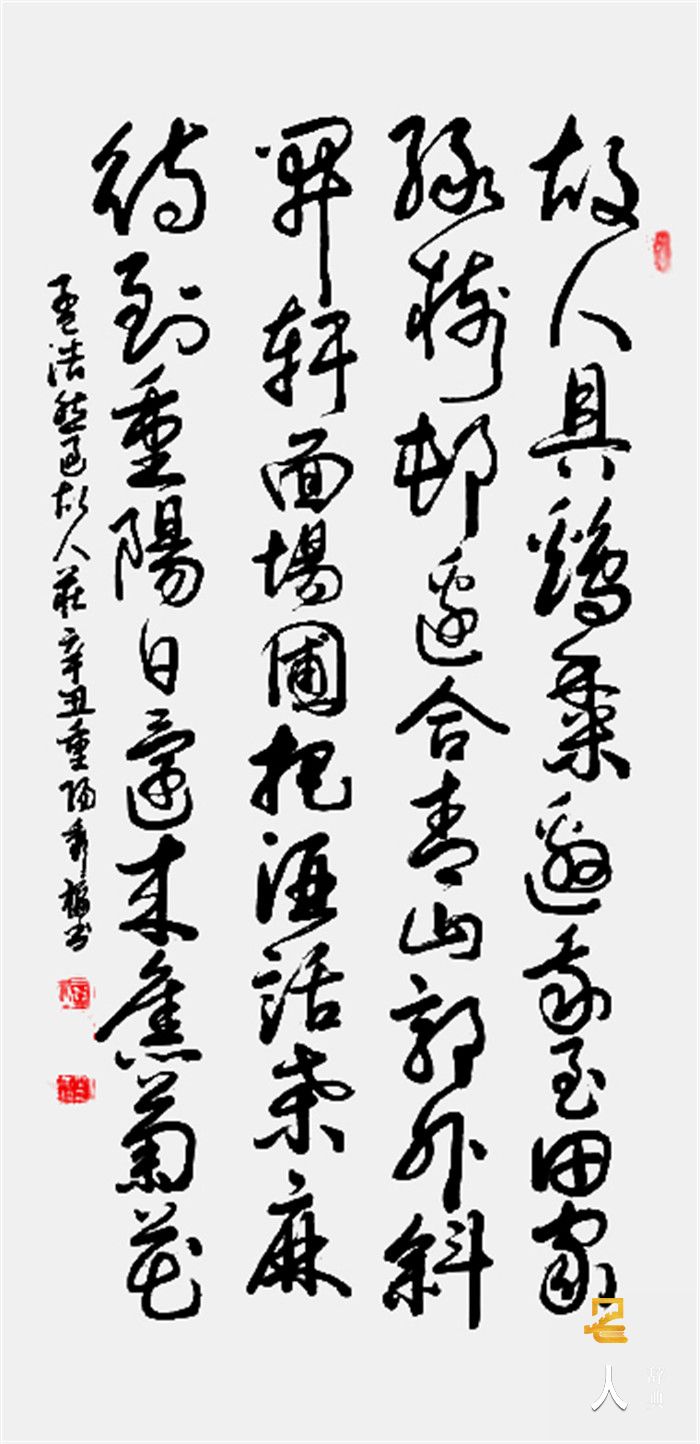 故人具鷄黍邀我至田家
綠樹邨邊合青山郭外斜
開軒面場圃把酒話桑麻
待到重陽日還来就菊花
孟浩然過故人莊辛丑重陽
名人
辞典